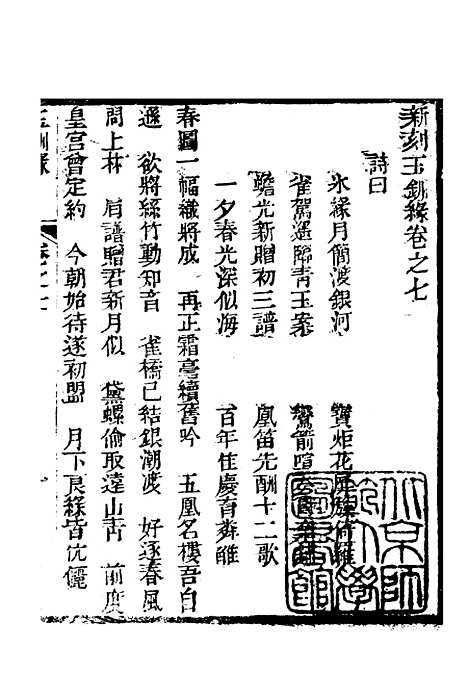 新刻玉釧緣卷之七
詩曰
氷緣月簡渡銀河 寶炬花屏簇綺羅
雀駕遙臨青玉案 鴛箭喧
蟾光新贈初三譜 凰笛先酬十二歌
一夕春光深似海 百年佳慶首螽雎
春圖一幅織將成 再正霜毫續舊吟 五鳳名樓吾白
遜 欲將絲竹動知音 雀橋已結銀潮渡 好逐春風
問上林 肩譜贈君新月似 黛螺偷取遠山青 前度
皇宮曾定約 今朝始待遂初盟 月下良緣皆伉儷
玉釧緣 卷之七 一